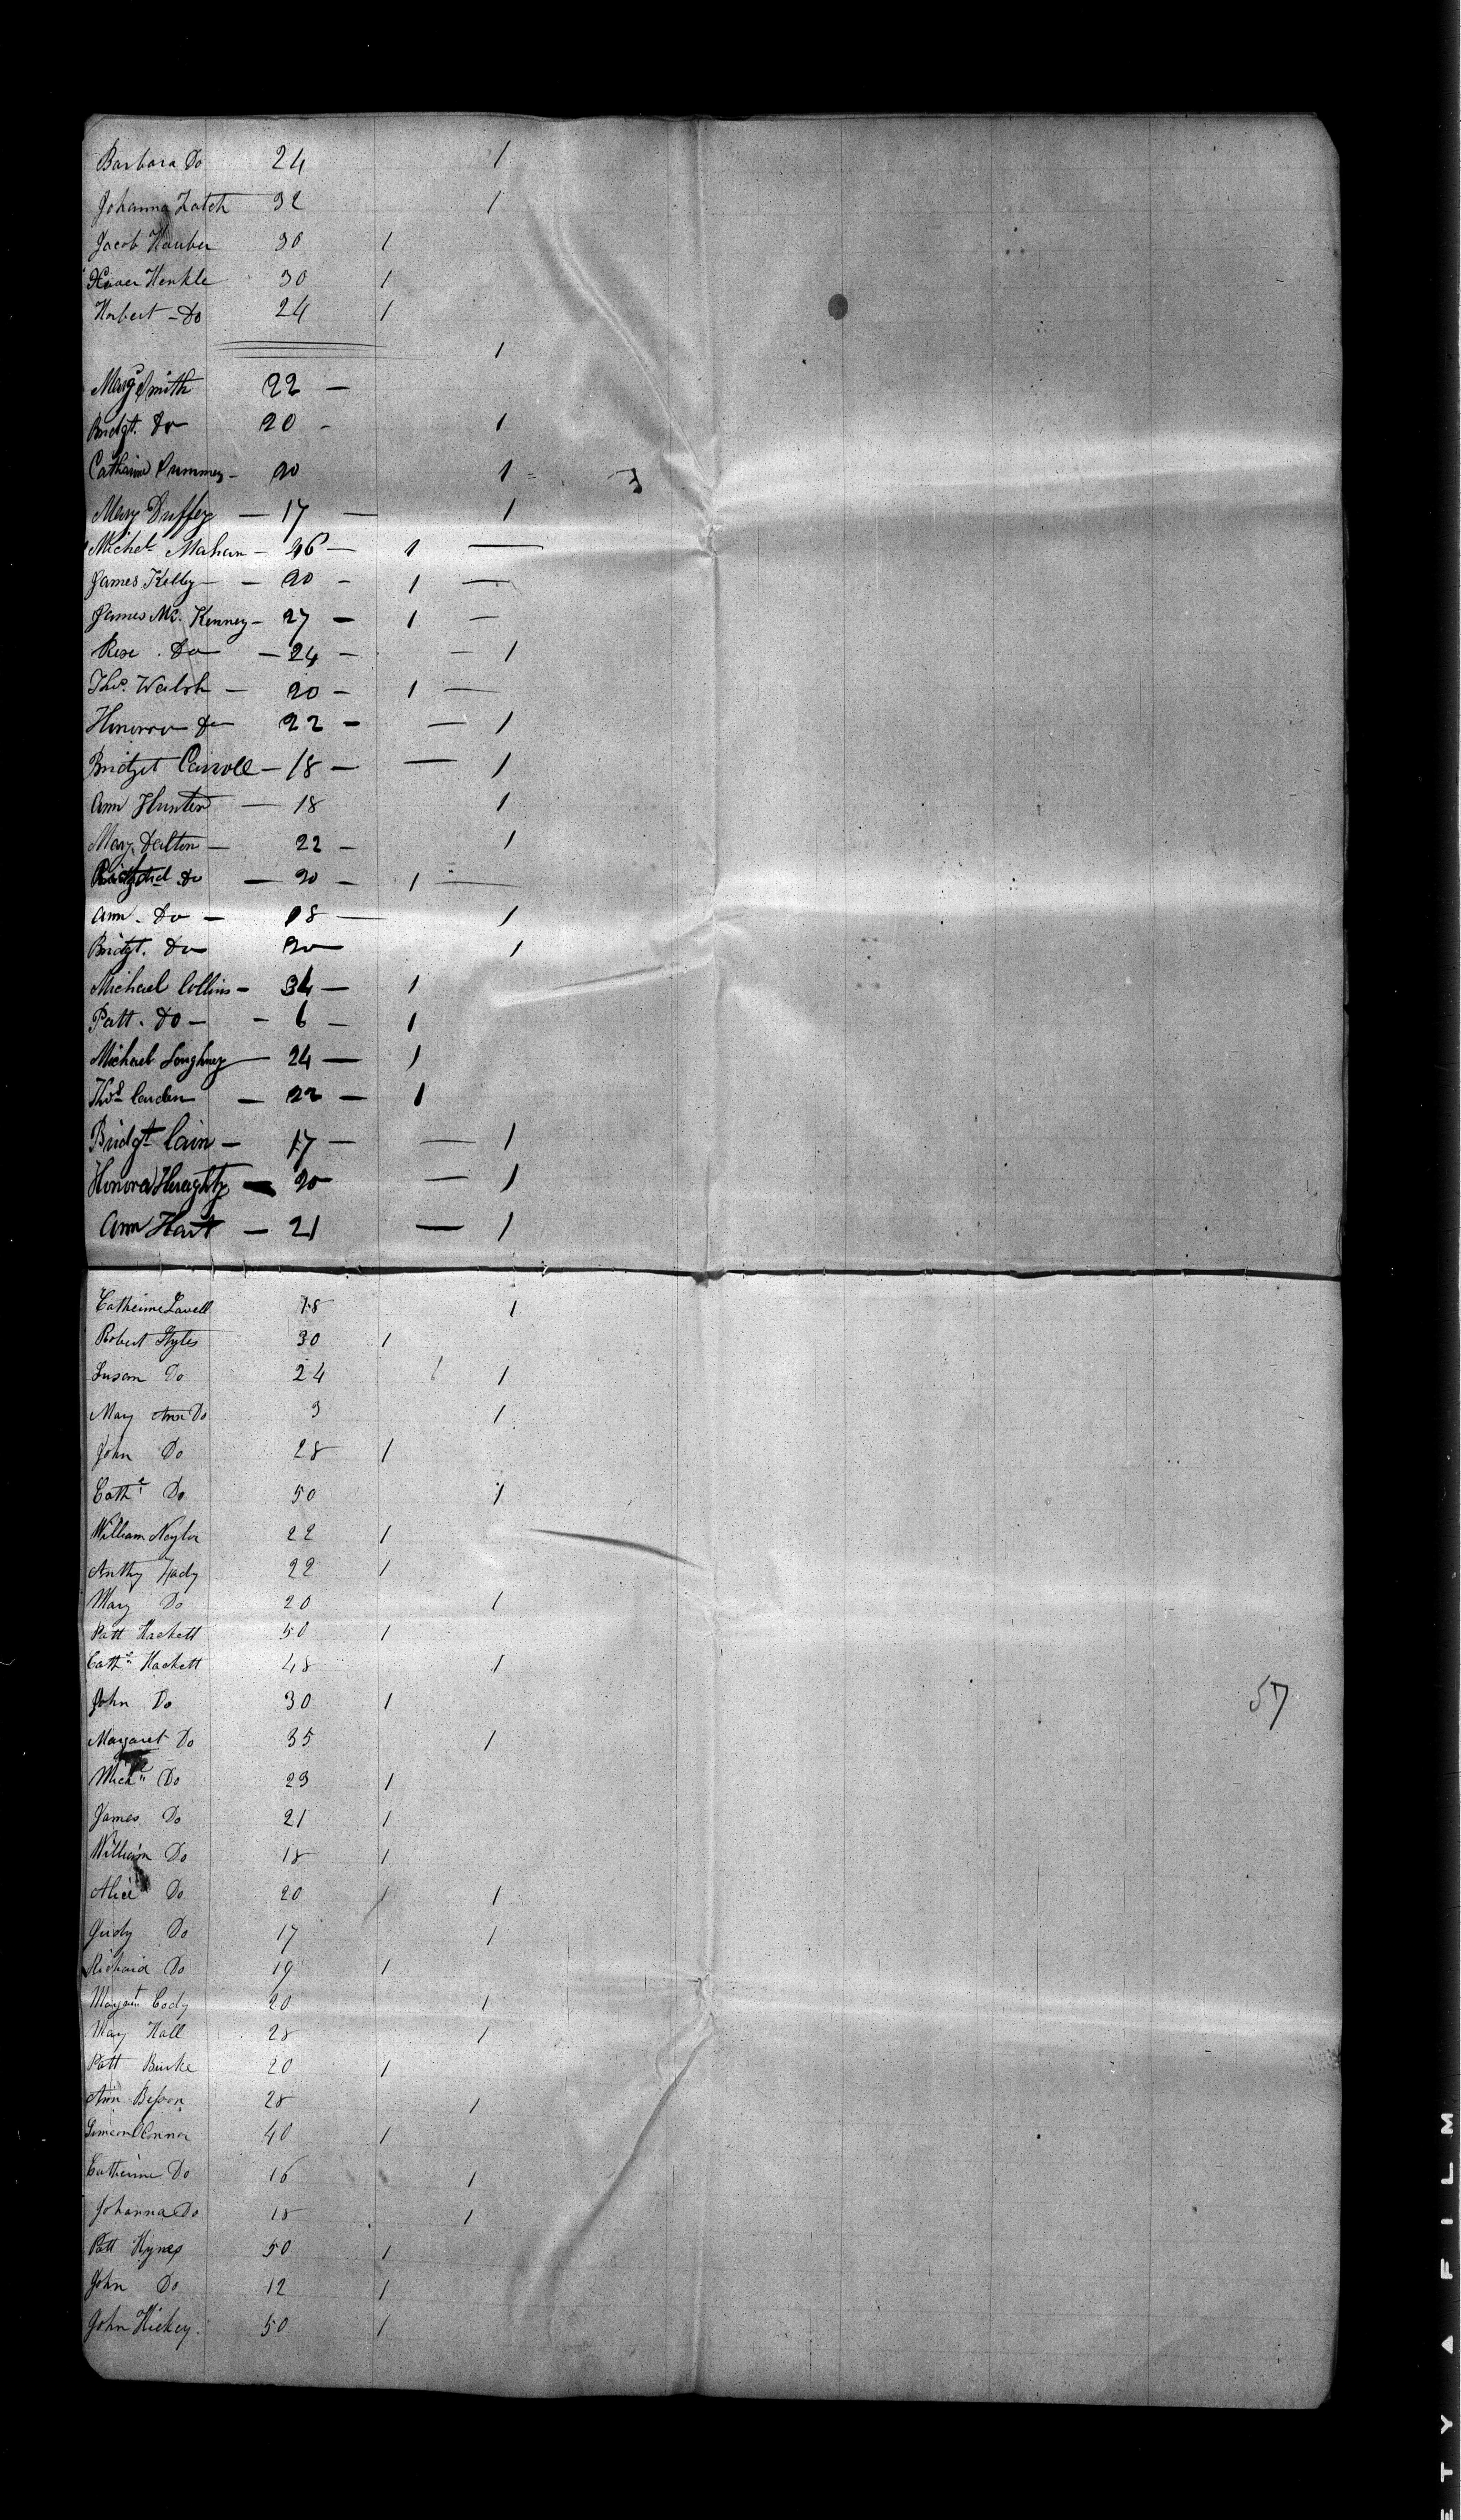 Barbara Do 24 1
Johanna Zatch 32 1
Jacob Hauber 30 1
Xaver Henkle 30 1
Herbert - Do 24 1
1
Marg Smith 22 —
Bridgt. Do 20 - 1
Catharine 20 1
Mary Duffey — 17 — 1
Michel Mahan — 26 — 1 —
James Kelly — — 20 - 1 —
James Mc. Kenney — 27 — 1 —
Rose . Do — 24 — — 1
Thos. Walsh — 20 — 1 —
Honorra Do 22 — — 1
Bridget Carroll — 18 — — 1
Ann Hunter — 18 1
Mary Dalton — 22 — 1
Do — 20 — 1 —
Ann . Do — 18 — 1
Bridgt. Do 20 1
Michael Collins — 34 — 1
Patt . Do — — 6 — 1
Michael Loughney — 24 — 1
Thos. — 22 — 1
Bridgt Cain — 17 — — 1
Honora Heraghty — 20 — 1
Ann Hart — 21 — 1
Catherine Lavell 18 1
Robert Styles 30 1
Susan Do 24 1
Mary Ann Do 3 1
John Do 28 1
Cathe Do 50 1
William Naylor 22 1
Anthy 22 1
Mary Do 20 1
Patt Hackett 50 1
Cathe Hackett 48 1
John Do 30 1
57
Margaret Do 35 1
Michl Do 23 1
James Do 21 1
William Do 18 1
Alice Do 20 1 1
Judy Do 17 1
Richard Do 19 1
Margaret Cody 20 1
Mary Hall 28 1
Patt Burke 20 1
Ann Besson 28 1
Simeon OConnor 40 1
Catherine Do 16 1
Johanna Do 18 1
Patt Hynes 50 1
John Do 12 1
John Hickey. 50 1